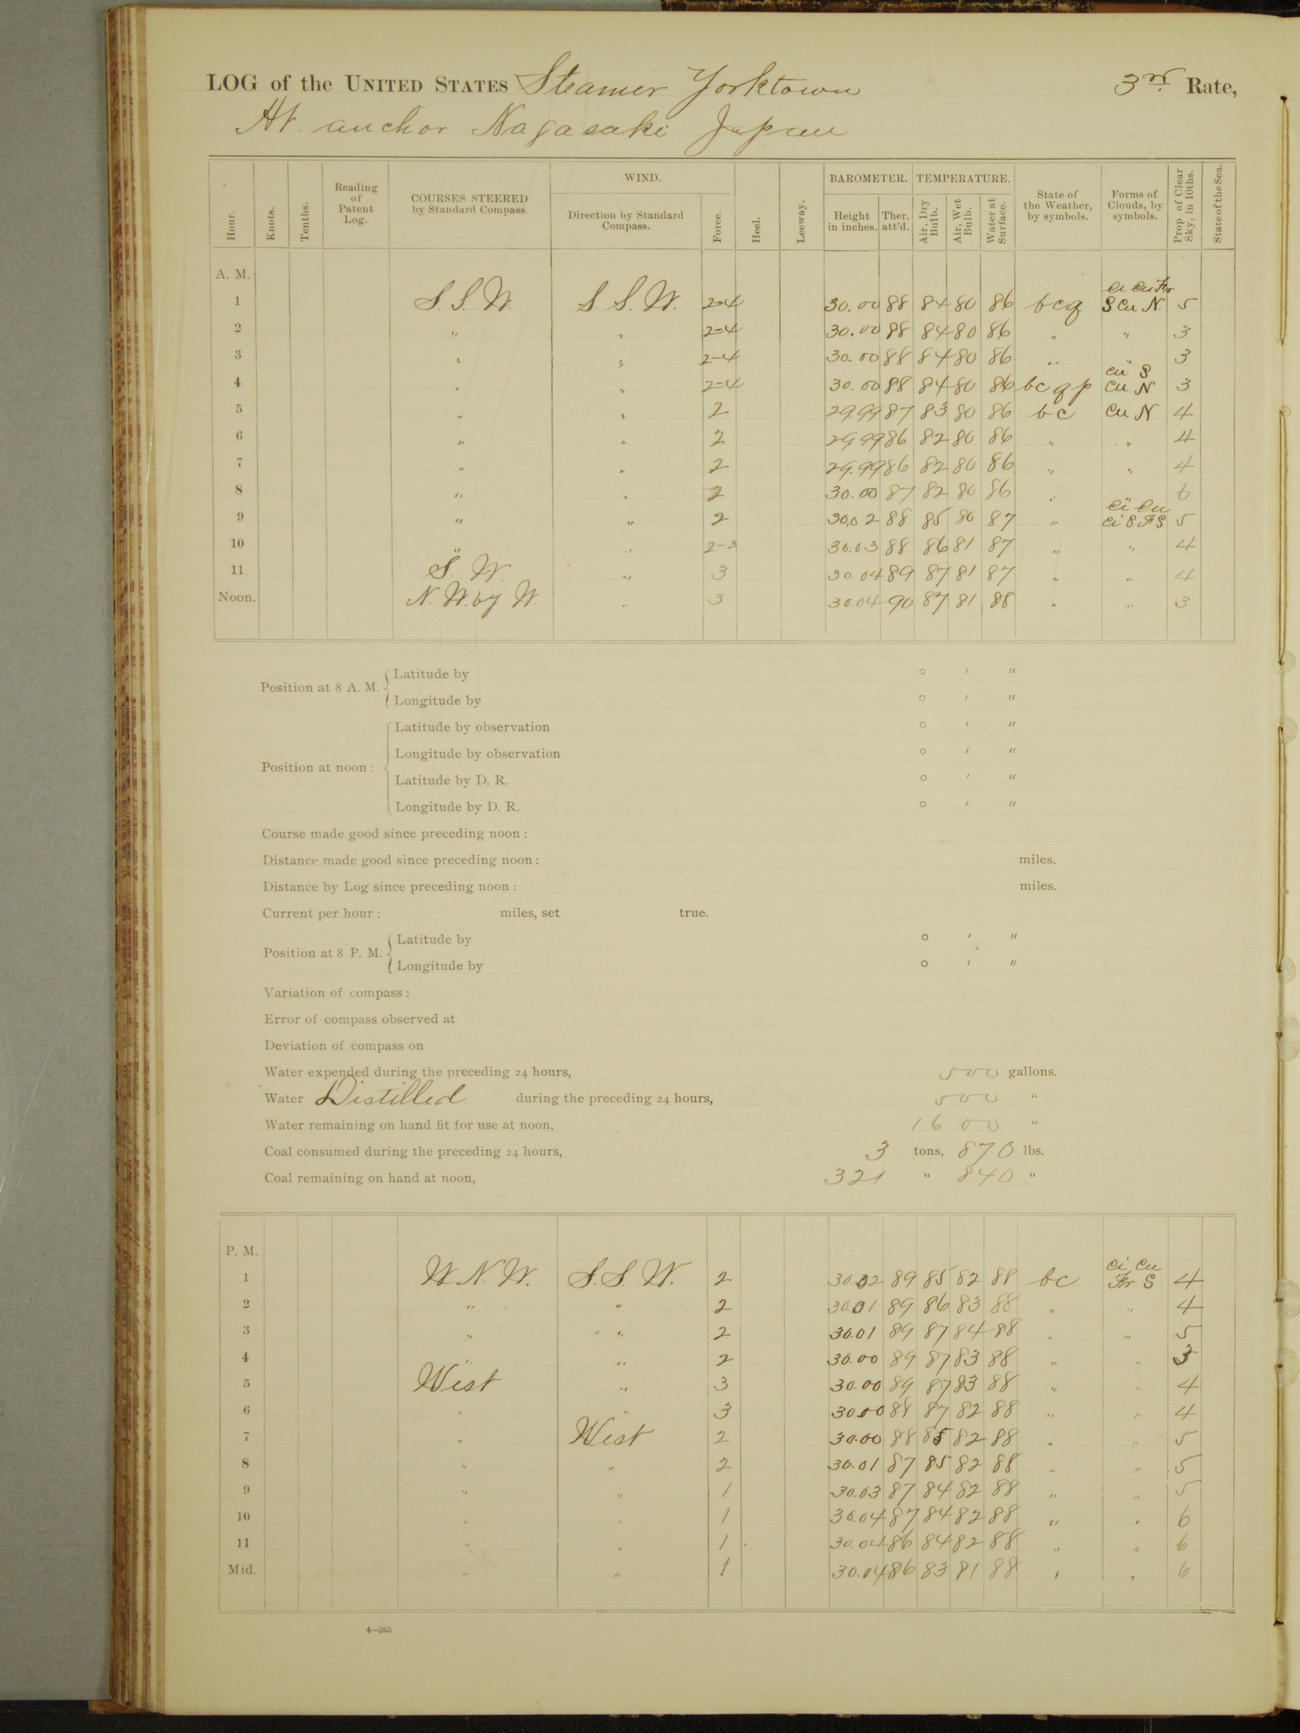 LOG of the UNITED STATES Steamer Yorktown 3rd Rate,
At anchor Nagasaki Japan
Hour. Knots. Tenths. Reading of Patent Log. COURSES STEERED by Standard Compass. WIND. Direction by Standard Compass. Force. Heel. Leeway. BAROMETER. Height in inches. Ther. att'd. TEMPERATURE. Air, Dry Bulb. Air, Wet Bulb. Water at Surface. State of the Weather, by symbols. Forms of Clouds, by symbols. Prop. of Clear Sky, in 10ths. State of the Sea.
A. M.
1 S.S.W. S.S.W. 2-4 30.00 88 84 80 86 bcq Ci Cu Fr S Cu N 5
2 " " 2-4 30.00 88 84 80 86 " " 3
3 " " 2-4 30.00 88 84 80 86 " " 3
4 " " 2-4 30.00 88 84 80 86 bcqp Cu S Cu N 3
5 " " 2 29.99 87 83 80 86 bc Cu N 4
6 " " 2 29.99 86 82 80 86 " " 4
7 " " 2 29.99 86 82 80 86 " " 4
8 " " 2 30.00 87 82 80 86 " " 6
9 " " 2 30.02 88 85 80 87 " Ci Cu Ci S Fr S 5
10 " " 2-3 30.03 88 86 81 87 " " 4
11 S.W. " 3 30.04 89 87 81 87 " " 4
Noon. N.W. by W. " 3 30.04 90 87 81 88 " " 3
Position at 8 A. M. Latitude by ° ′ ″
Longitude by ° ′ ″
Position at noon: Latitude by observation ° ′ ″
Longitude by observation ° ′ ″
Latitude by D. R. ° ′ ″
Longitude by D. R. ° ′ ″
Course made good since preceding noon:
Distance made good since preceding noon: miles.
Distance by Log since preceding noon: miles.
Current per hour: miles, set true.
Position at 8 P. M. Latitude by ° ′ ″
Longitude by ° ′ ″
Variation of compass:
Error of compass observed at
Deviation of compass on
Water expended during the preceding 24 hours, 500 gallons.
Water Distilled during the preceding 24 hours, 500 "
Water remaining on hand fit for use at noon, 1600 "
Coal consumed during the preceding 24 hours, 3 tons, 870 lbs.
Coal remaining on hand at noon, 321 " 840 "
P. M.
1 W.N.W. S.S.W. 2 30.02 89 85 82 88 bc Ci Cu Fr S 4
2 " " 2 30.01 89 86 83 88 " " 4
3 " " 2 30.01 89 87 84 88 " " 5
4 " " 2 30.00 89 87 83 88 " " 3
5 West " 3 30.00 89 87 83 88 " " 4
6 " " 3 30.00 88 87 82 88 " " 4
7 " West 2 30.00 88 85 82 88 " " 5
8 " " 2 30.01 87 85 82 88 " " 5
9 " " 1 30.03 87 84 82 88 " " 5
10 " " 1 30.04 87 84 82 88 " " 6
11 " " 1 30.04 86 84 82 88 " " 6
Mid. " " 1 30.04 86 83 81 88 " " 6
4—265